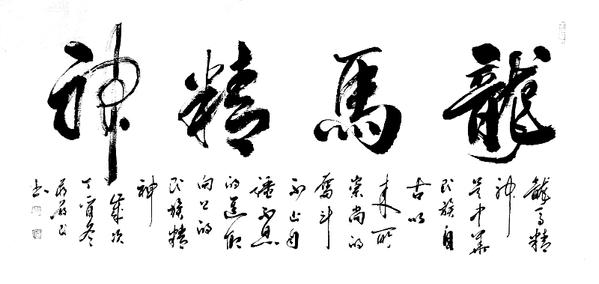 龍馬精神
龍马精
神
是中華
民族自
古以
来所
崇尚的
奮斗
不止自
强不息
的進取
向上的
民族精
神
歲次
丁酉冬
书